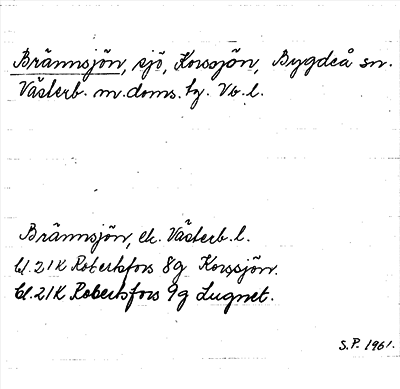 Brännsjön, sjö, Korssjön, Bygdeå sn.
Västerb. m. doms. tg. Vb. l.
Brännsjön, ek. Västerb. l.
bl. 21K Robertsfors 8g Korssjön.
bl. 21K Robertsfors 9g Lugnet.
S.P. 1961.